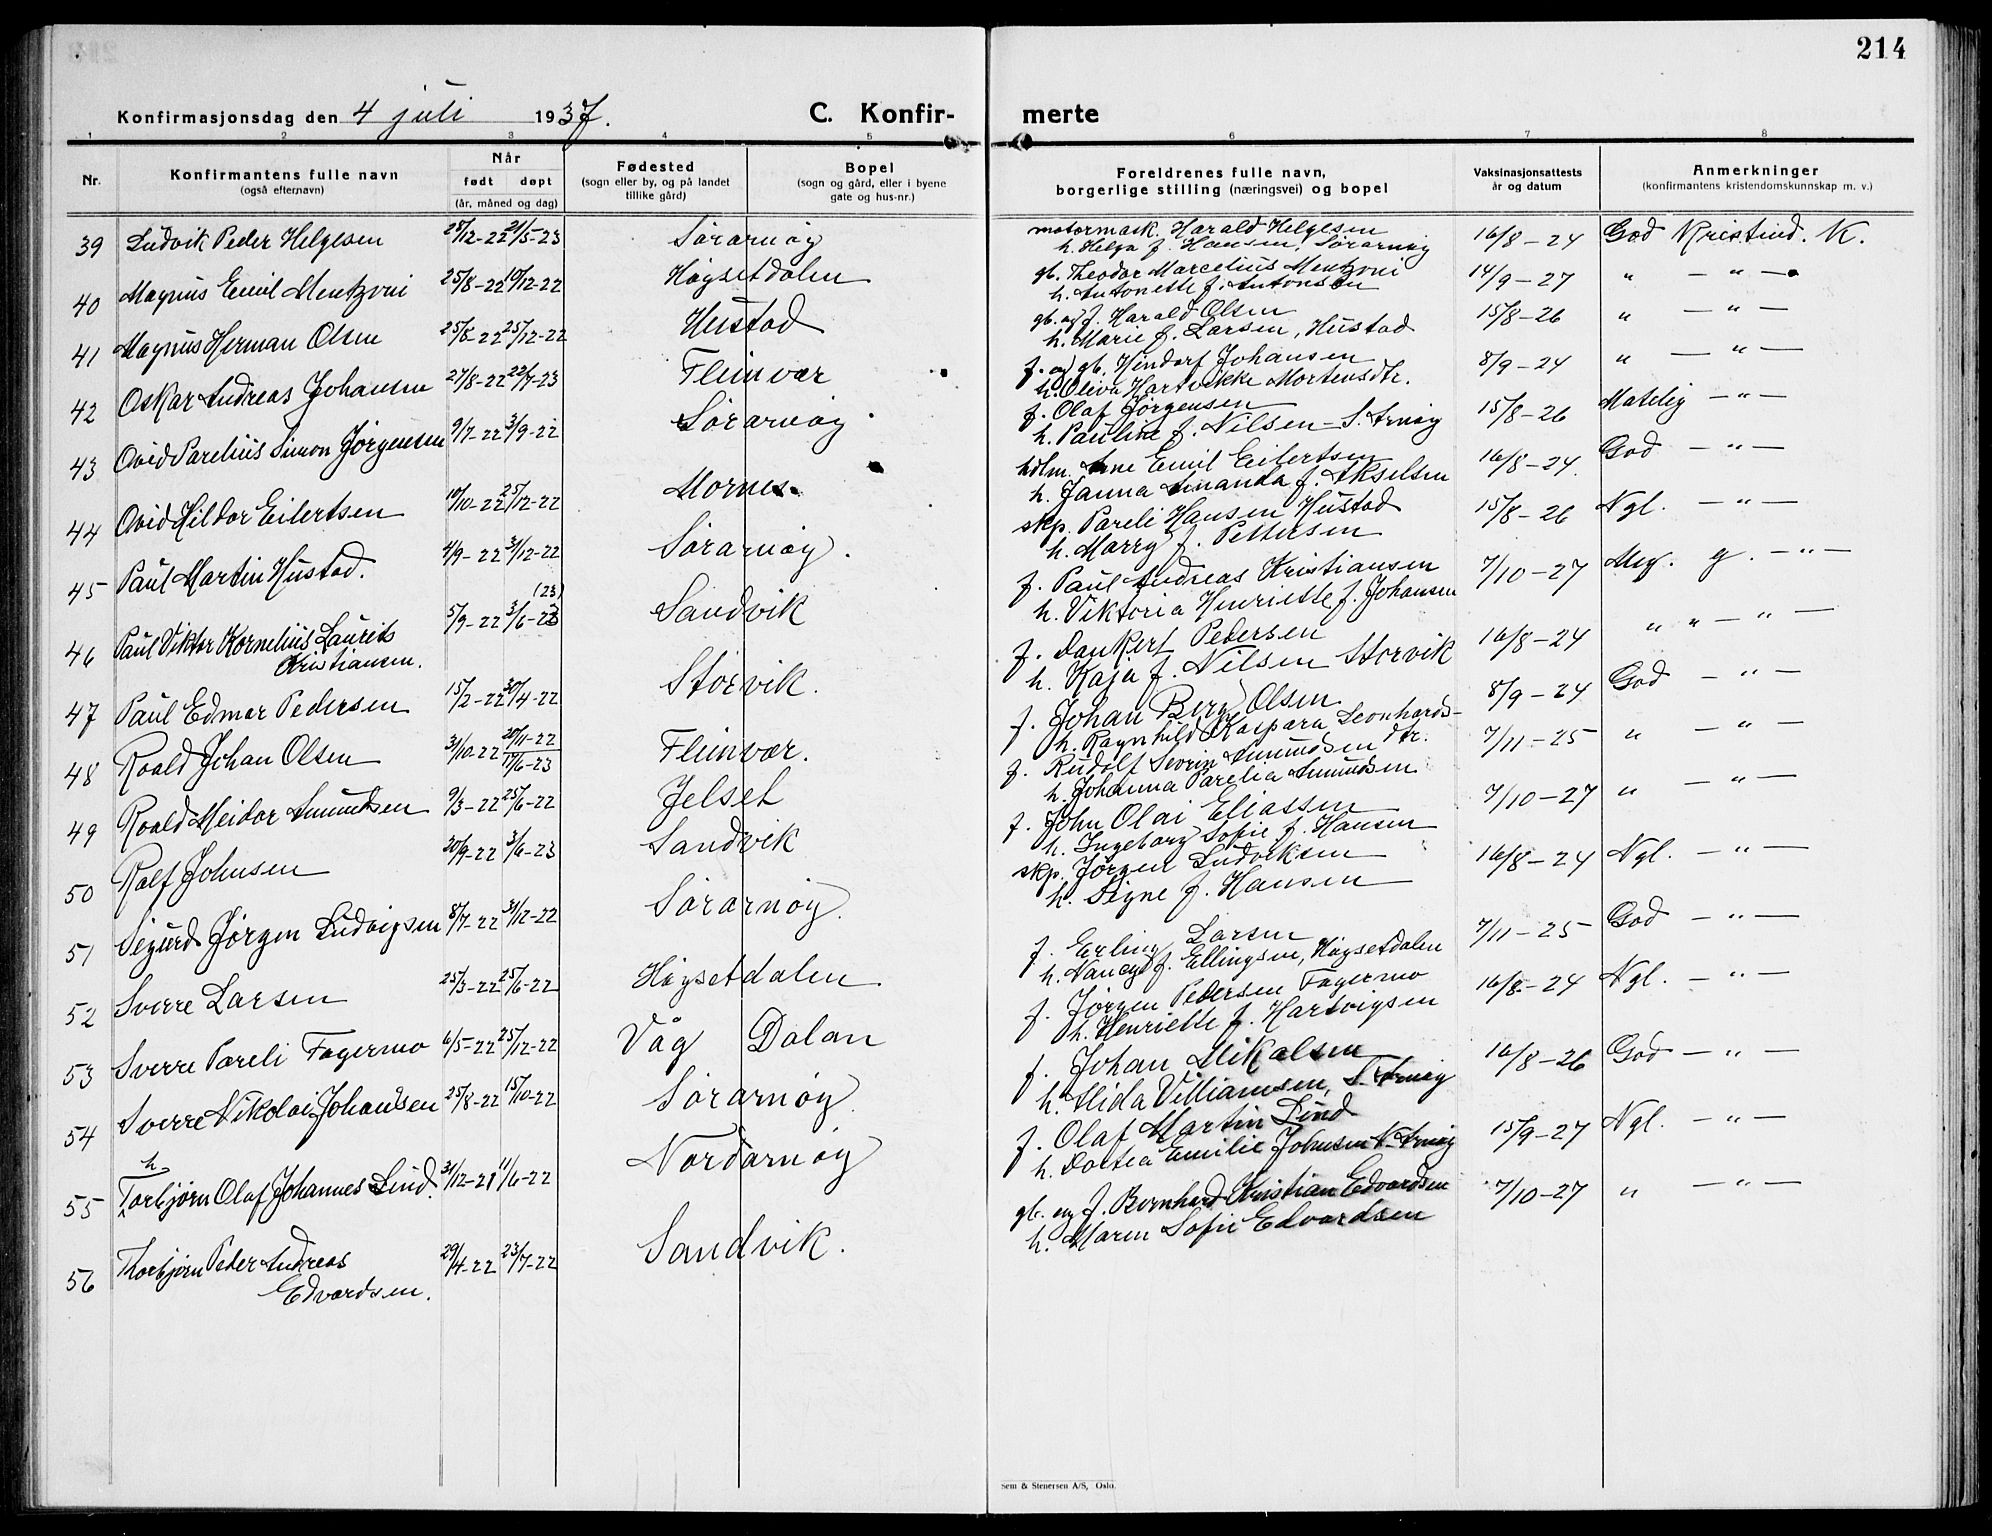 214
Konfirmasjonsdag den 4 juli 1937. C. Konfir- merte
1 2 3 4 5 6 7 8
Nr. Konfirmantens fulle navn (også efternavn) Når født døpt (år, måned og dag) Fødested (sogn eller by, og på landet tillike gård) Bopel (sogn og gård, eller i byene gate og hus-nr.) Foreldrenes fulle navn, borgerlige stilling (næringsvei) og bopel Vaksinasjonsattests år og datum Anmerkninger (konfirmantens kristendomskunnskap m. v.)
39 Ludvik Peder Helgesen 28/12-22 21/5-23 Sørarnøy motormask. Harald Helgesen 16/8-24 God Kristind. K.
h. Helga f. Hansen, Sørarnøy
40 Magnus Emil Mentzoni 25/8-22 10/12-22 Høgsetdalen gb. Theodor Marcelius Mentzoni 14/9-27 " — " —
h. Antonette f. Antonsen
41 Magnus Herman Olsen 25/8-22 25/12-22 Hustad gb. og f. Harald Olsen 15/8-26 " — " —
h. Marie f. Larsen, Hustad
42 Oskar Andreas Johansen 27/8-22 22/7-23 Fleinvær f. og gb. Hindorf Johansen 8/9-24 " — " —
h. Oliva Hartvikke Mortensdtr.
43 Ovid Parelius Simon Jørgensen 9/7-22 3/9-22 Sørarnøy f. Olaf Jørgensen 15/8-26 Matelig — " —
h. Pauline f. Nilsen - S. Arnøy
44 Ovid Hildor Eilertsen 10/10-22 25/12-22 Mornes hdlm. Arne Emil Eilertsen 16/8-24. God — " —
h. Janna Amanda f. Akselsen
45 Paul Martin Hustad. 4/9-22 31/12-22 Sørarnøy. skp. Pareli Hansen Hustad 15/8-26 Ngl. — " —
h. Marry f. Pettersen
46 Paul Viktor Kornelius Laurits 5/9-22 3/6-23 (23) Sandvik f. Paul Andreas Kristiansen 7/10-27 Meg. g. — " —
Kristiansen. h. Viktoria Henriette f. Johansen
47 Paul Edmar Pedersen 15/2-22 30/4-22 Storvik. f. Dankert Pedersen 16/8-24 " " — " —
h. Kaja f. Nilsen Storvik
48 Roald Johan Olsen 31/10-22 20/11-22 17/6-23 Fleinvær. f. Johan Berg Olsen 8/9-24 God — " —
h. Ragnhild Kaspara Leonhards-
dtr.
49 Roald Meidor Amundsen 9/3-22 25/6-22 Jelset f. Rudolf Severin Amundsen 7/11-25 " — " —
h. Johanna Parelia Amundsen
50 Rolf Johnsen 30/9-22 3/6-23 Sandvik f. John Olai Eliassen 7/10-27 " — " —
h. Ingeborg Sofie f. Hansen
51 Sigurd Jørgen Ludvigsen 8/7-22 31/12-22 Sørarnøy. skp. Jørgen Ludviksen 16/8-24 Ngl. — " —
h. Signe f. Hansen
52 Sverre Larsen 25/3-22 25/6-22 Høgsetdalen f. Erling Larsen 7/11-25 God — " —
h. Nancy f. Ellingsen, Høgsetdalen
53 Sverre Pareli Fagermo 6/5-22 25/12-22 Våg Dalan f. Jørgen Pedersen Fagermo 16/8-24 Ngl. — " —
h. Henriette f. Hartvigsen
54 Sverre Nikolai Johansen 25/8-22 15/10-22 Sørarnøy. f. Johan Mikalsen 16/8-26 God — " —
h. Alida Villiamsen, S. Arnøy
h
55 Torbjørn Olaf Johannes Lind. 31/12-21 11/6-22 Nordarnøy f. Olaf Martin Lind 15/9-27 Ngl. — " —
h. Dortea Emilie Johnsen N. Arnøy
56 Thorbjørn Peder Andreas 29/4-22 23/7-22 Sandvik. gb. og f. Bernhard Kristian Edvardsen 7/10-27 " — " —
Edvardsen. h. Maren Sofie Edvardsen
Sem & Stenersen A/S, Oslo.